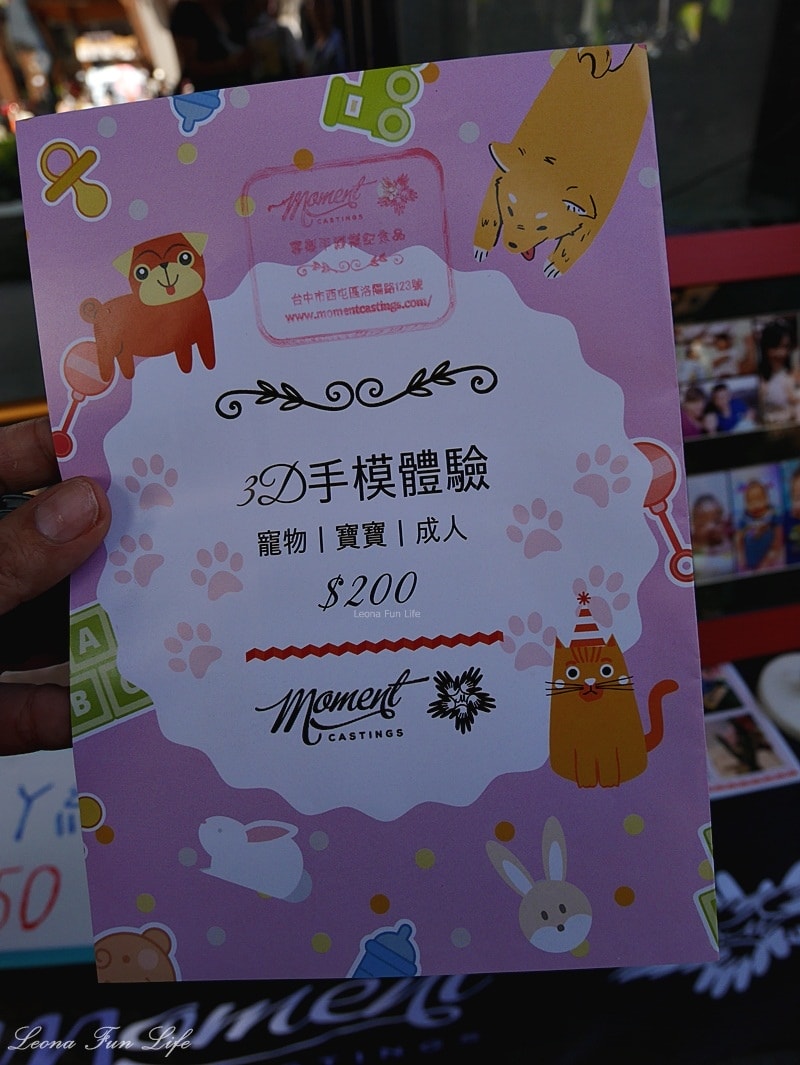 Moment
CASTINGS
台中市西屯區洛陽路123號
www.momentcastings.com/
3D手模體驗
寵物 | 寶寶 | 成人
$200
Leona Fun Life
Moment
CASTINGS
A
B
50
Moment
CASTINGS
Leona Fun Life